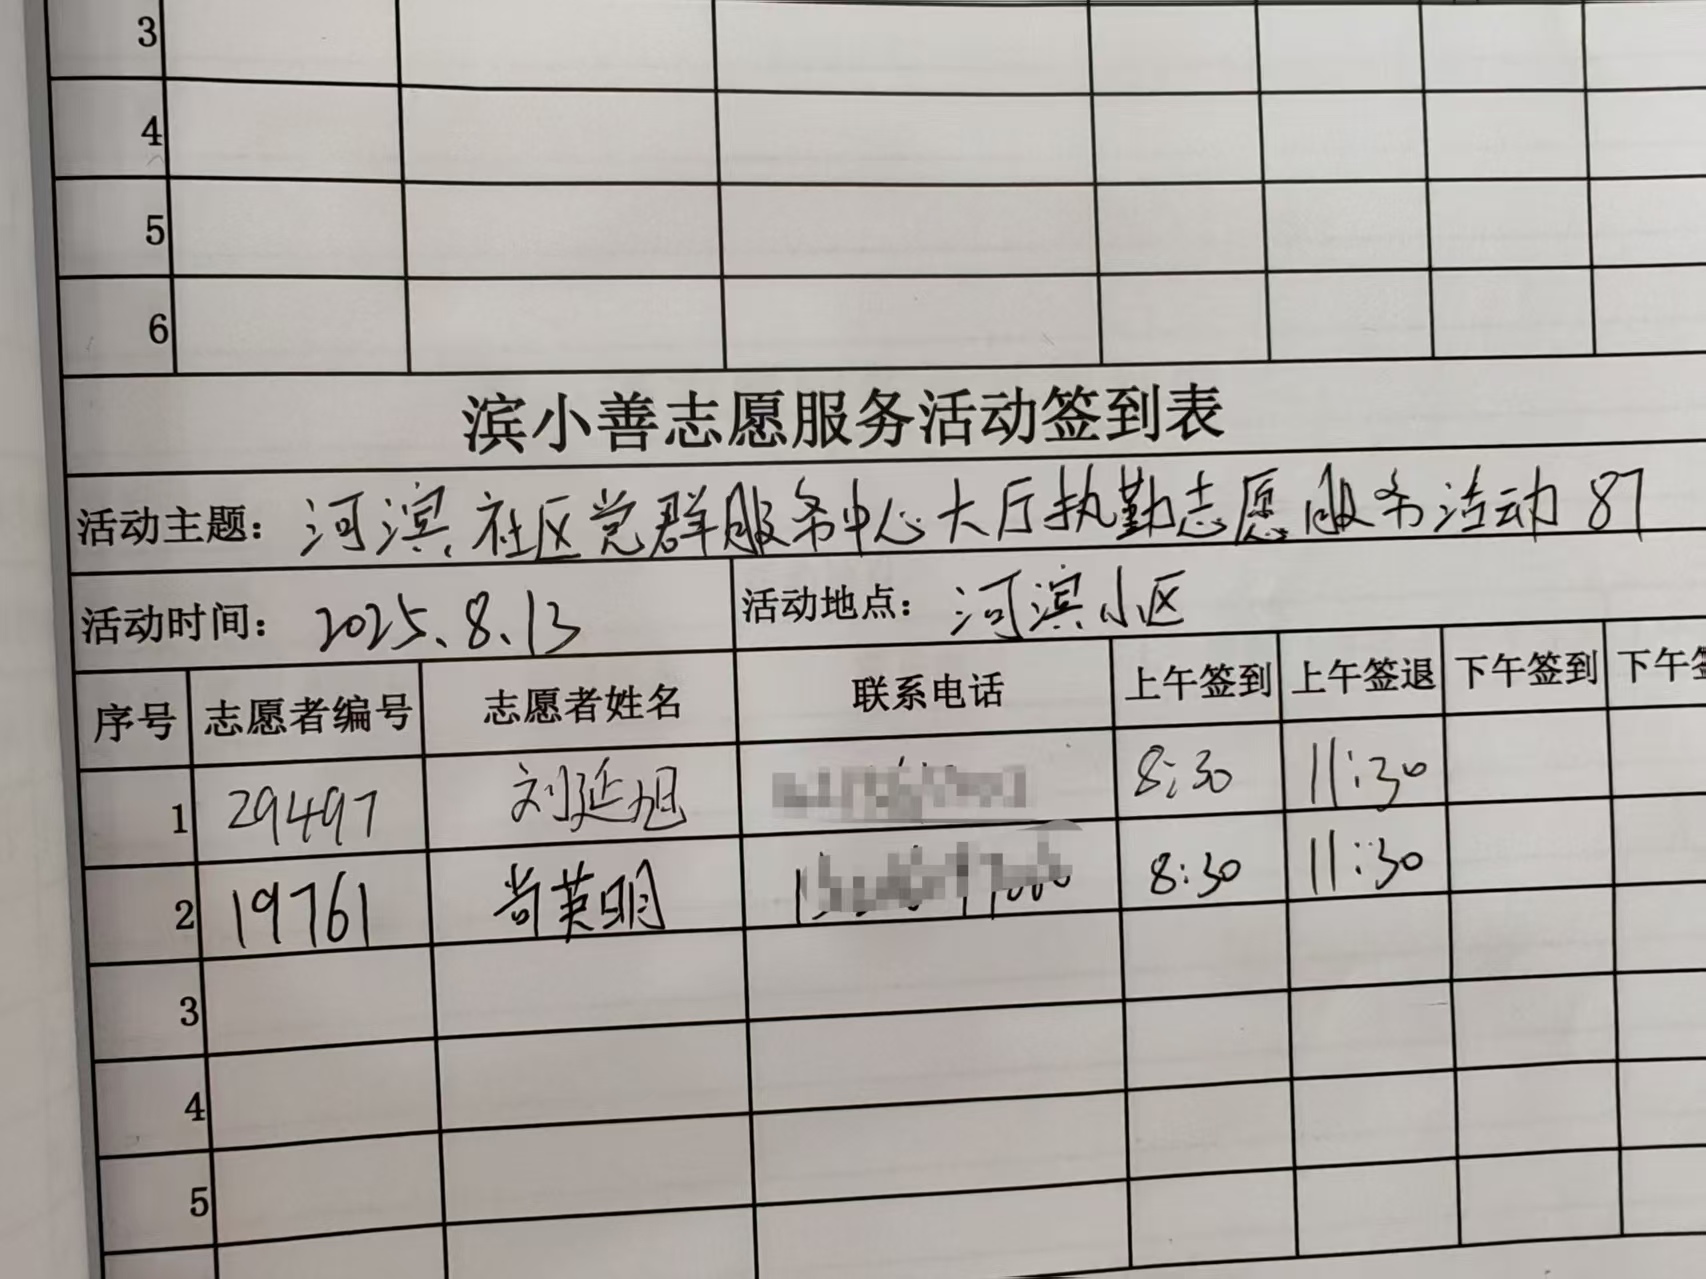 3
4
5
6
滨小善志愿服务活动签到表
活动主题：河滨社区党群服务中心大厅执勤志愿服务活动87
活动时间：2025.8.13 活动地点：河滨小区
序号 志愿者编号 志愿者姓名 联系电话 上午签到 上午签退 下午签到 下午签
1 29497 刘延旭 8:30 11:30
2 19761 尚英明 8:30 11:30
3
4
5